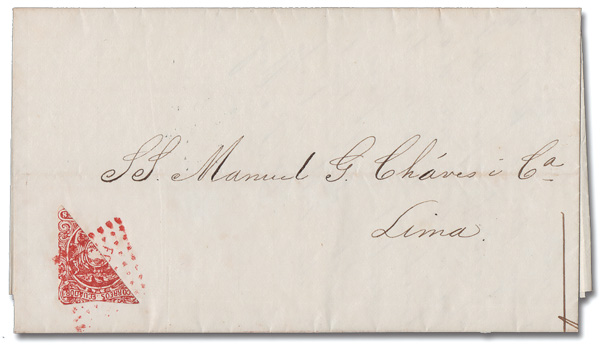 SS. Manuel G. Cháves i Ca
Lima.
CORREOS